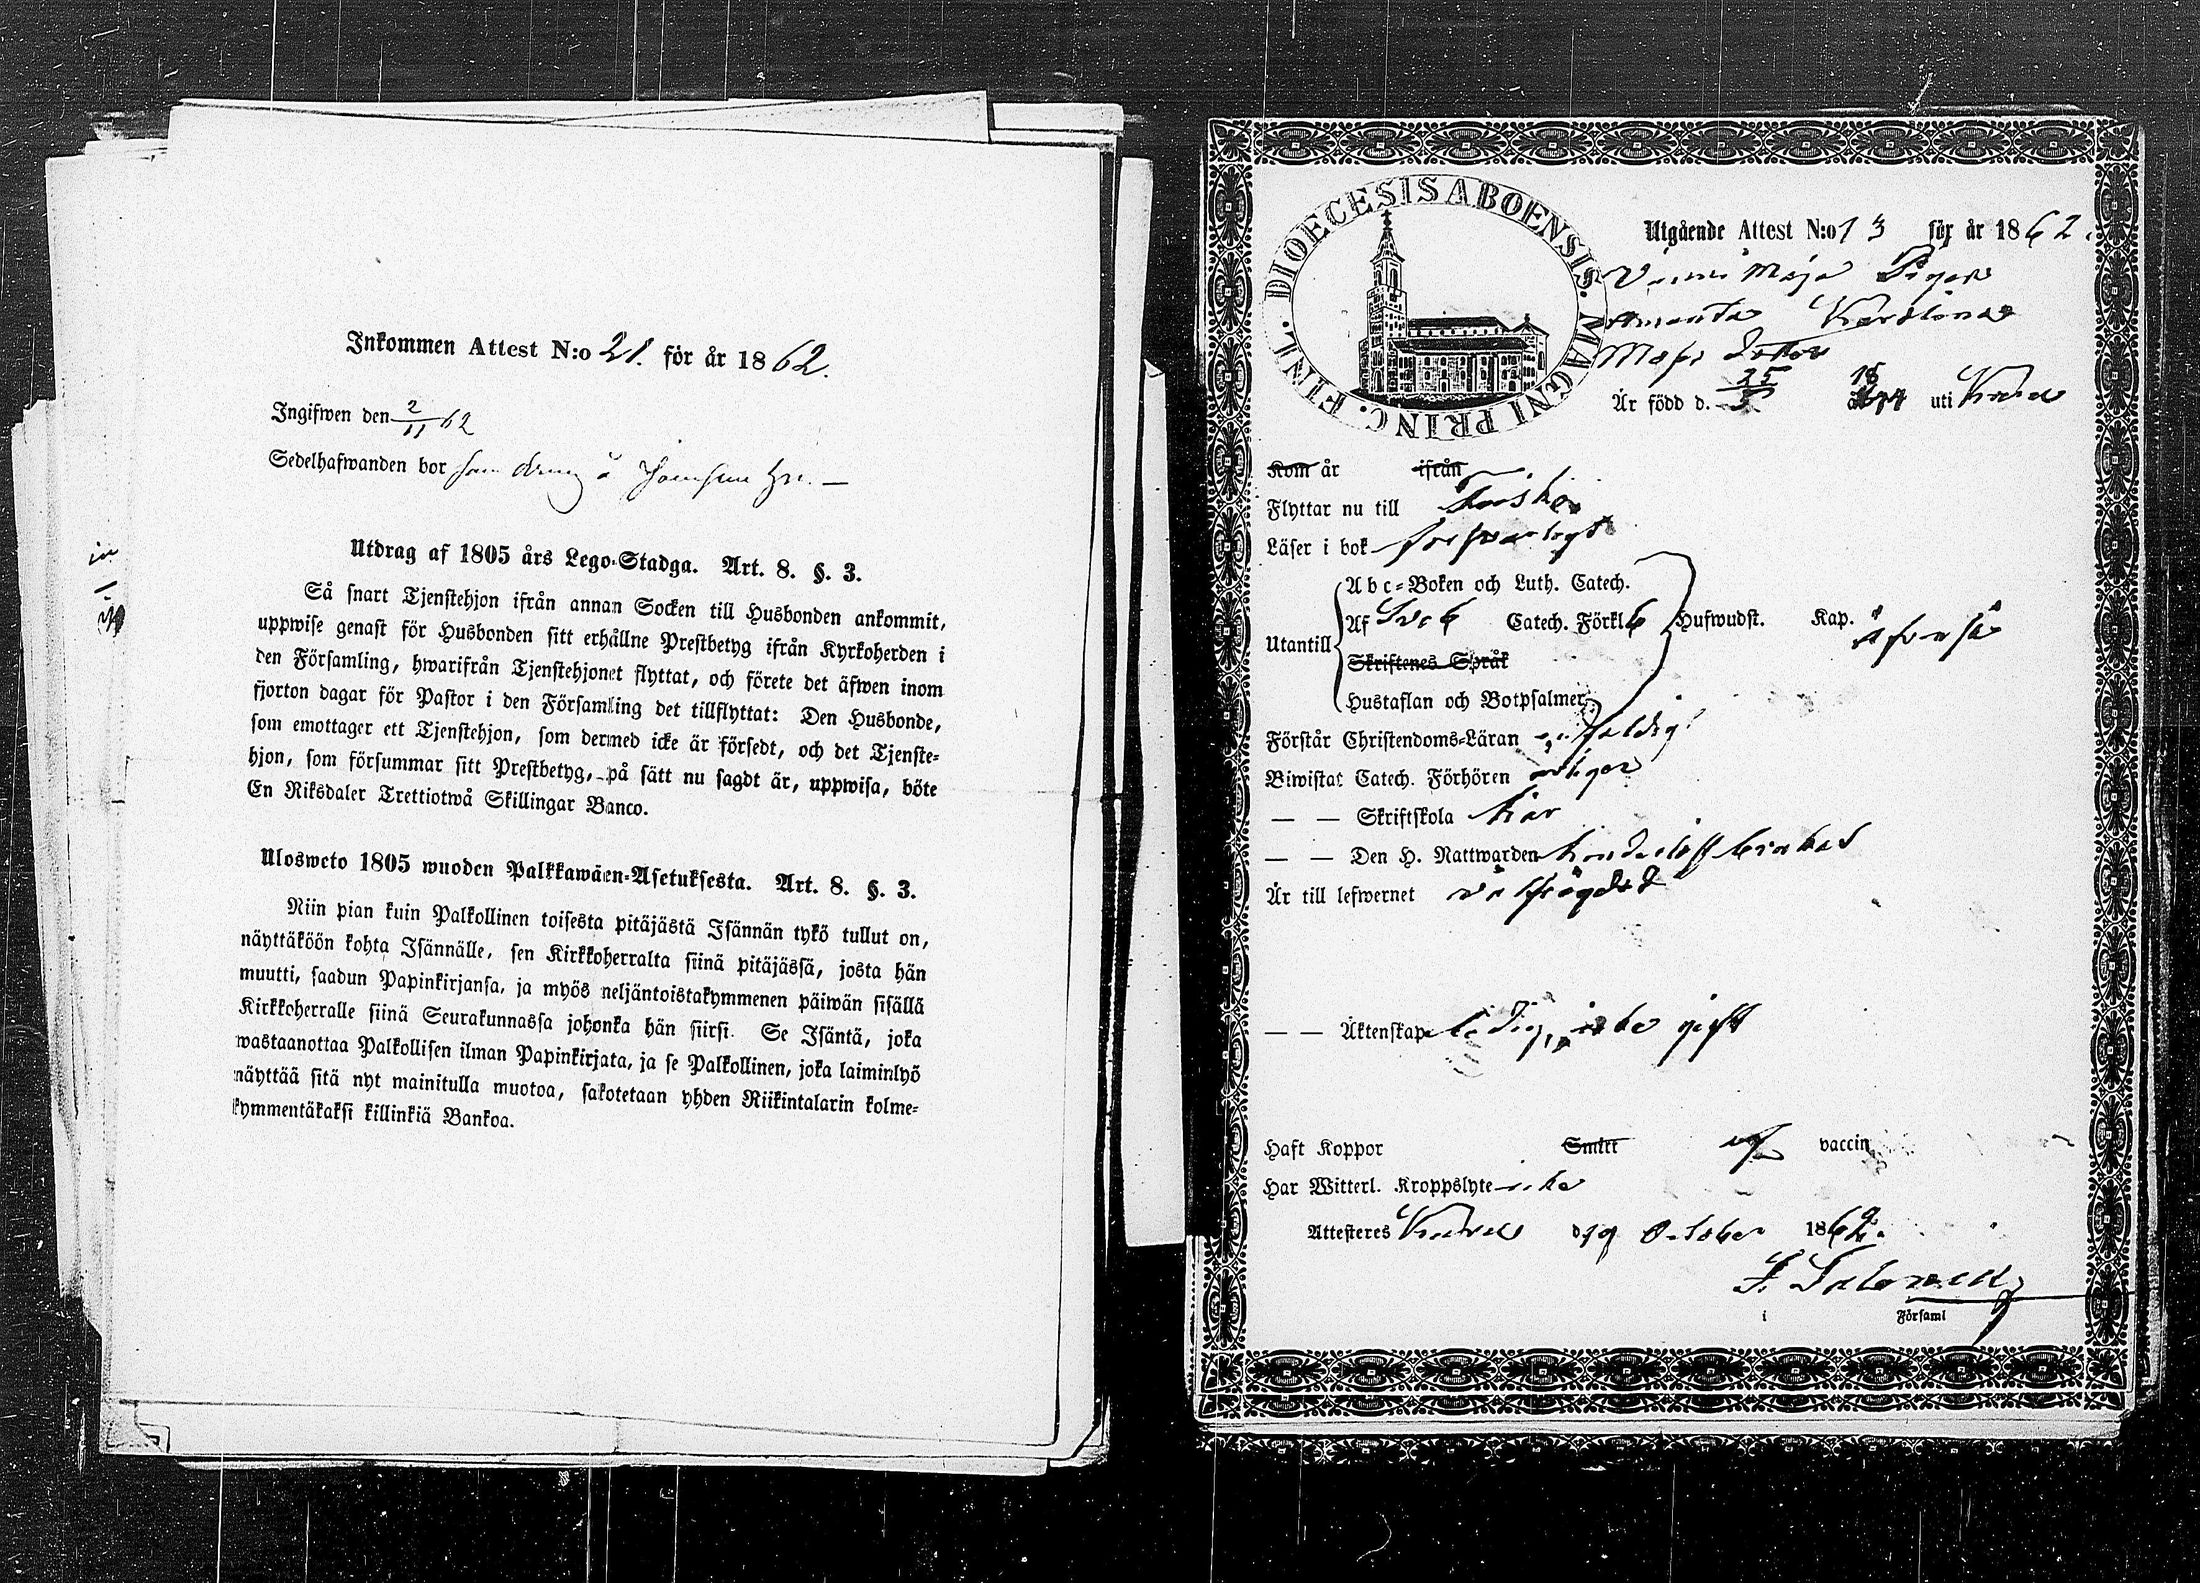 Inkommen Attest N:o 21. för år 1862.
Ingifwen den 2/11 62
Sedelhafwanden bor som dreng å
Utdrag af 1805 års Lego-Stadga. Art. 8. §. 3.
Så snart Tjenstehjon ifrån annan Socken till Husbonden ankommit,
uppwise genast för Husbonden sitt erhållne Prestbetyg ifrån Kyrkoherden i
den Församling, hwarifrån Tjenstehjonet flyttat, och förete det äfwen inom
fjorton dagar för Pastor i den Församling det tillflyttat: Den Husbonde,
som emottager ett Tjenstehjon, som dermed icke är försedt, och det Tjenste-
hjon, som försummar sitt Prestbetyg, på sätt nu sagdt är, uppwisa, böte
En Riksdaler Trettiotwå Skillingar Banco.
Ulosweto 1805 wuoden Palkkawäen-Asetuksesta. Art. 8. §. 3.
Niin pian kuin Palkollinen toisesta pitäjästä Isännän tykö tullut on,
näyttäköön kohta Isännälle, sen Kirkkoherralta siinä pitäjässä, josta hän
muutti, saadun Papinkirjansa, ja myös neljäntoistakymmenen päiwän sisällä
Kirkkoherralle siinä Seurakunnassa johonka hän siirsi. Se Isäntä, joka
wastaanottaa Palkollisen ilman Papinkirjata, ja se Palkollinen, joka laiminlyö
näyttää sitä nyt mainitulla muotoa, sakotetaan yhden Riikintalarin kolme-
kymmentäkaksi killinkiä Bankoa.
DIOECESIS ABOENSIS. MAGNI PRINC. FINL.
Utgående Attest N:o 13 för år 1862.
Maja Pigan
Amanda Karolina
Mats dotter
Är född d. 25/5 18 44 uti
Kom år ifrån
Flyttar nu till
Läser i bok försvarligt
Abc-Boken och Luth. Catech.
Utantill Af Sveb Catech. Förkl 6 Hufwudst. Kap. äfvenså
Skriftenes Språk
Hustaflan och Botpsalmer
Förstår Christendoms-Läran enfaldigt
Biwistat Catech. Förhören årligen
— — Skriftskola här
— — Den H. Nattwarden
Är till lefwernet välfrägdad
— — Äktenskap ledig, icke gift
Haft Koppor Smitt vaccin
Har Witterl. Kroppslyte icke
Attesteres d 19 October 1862.
i Församl